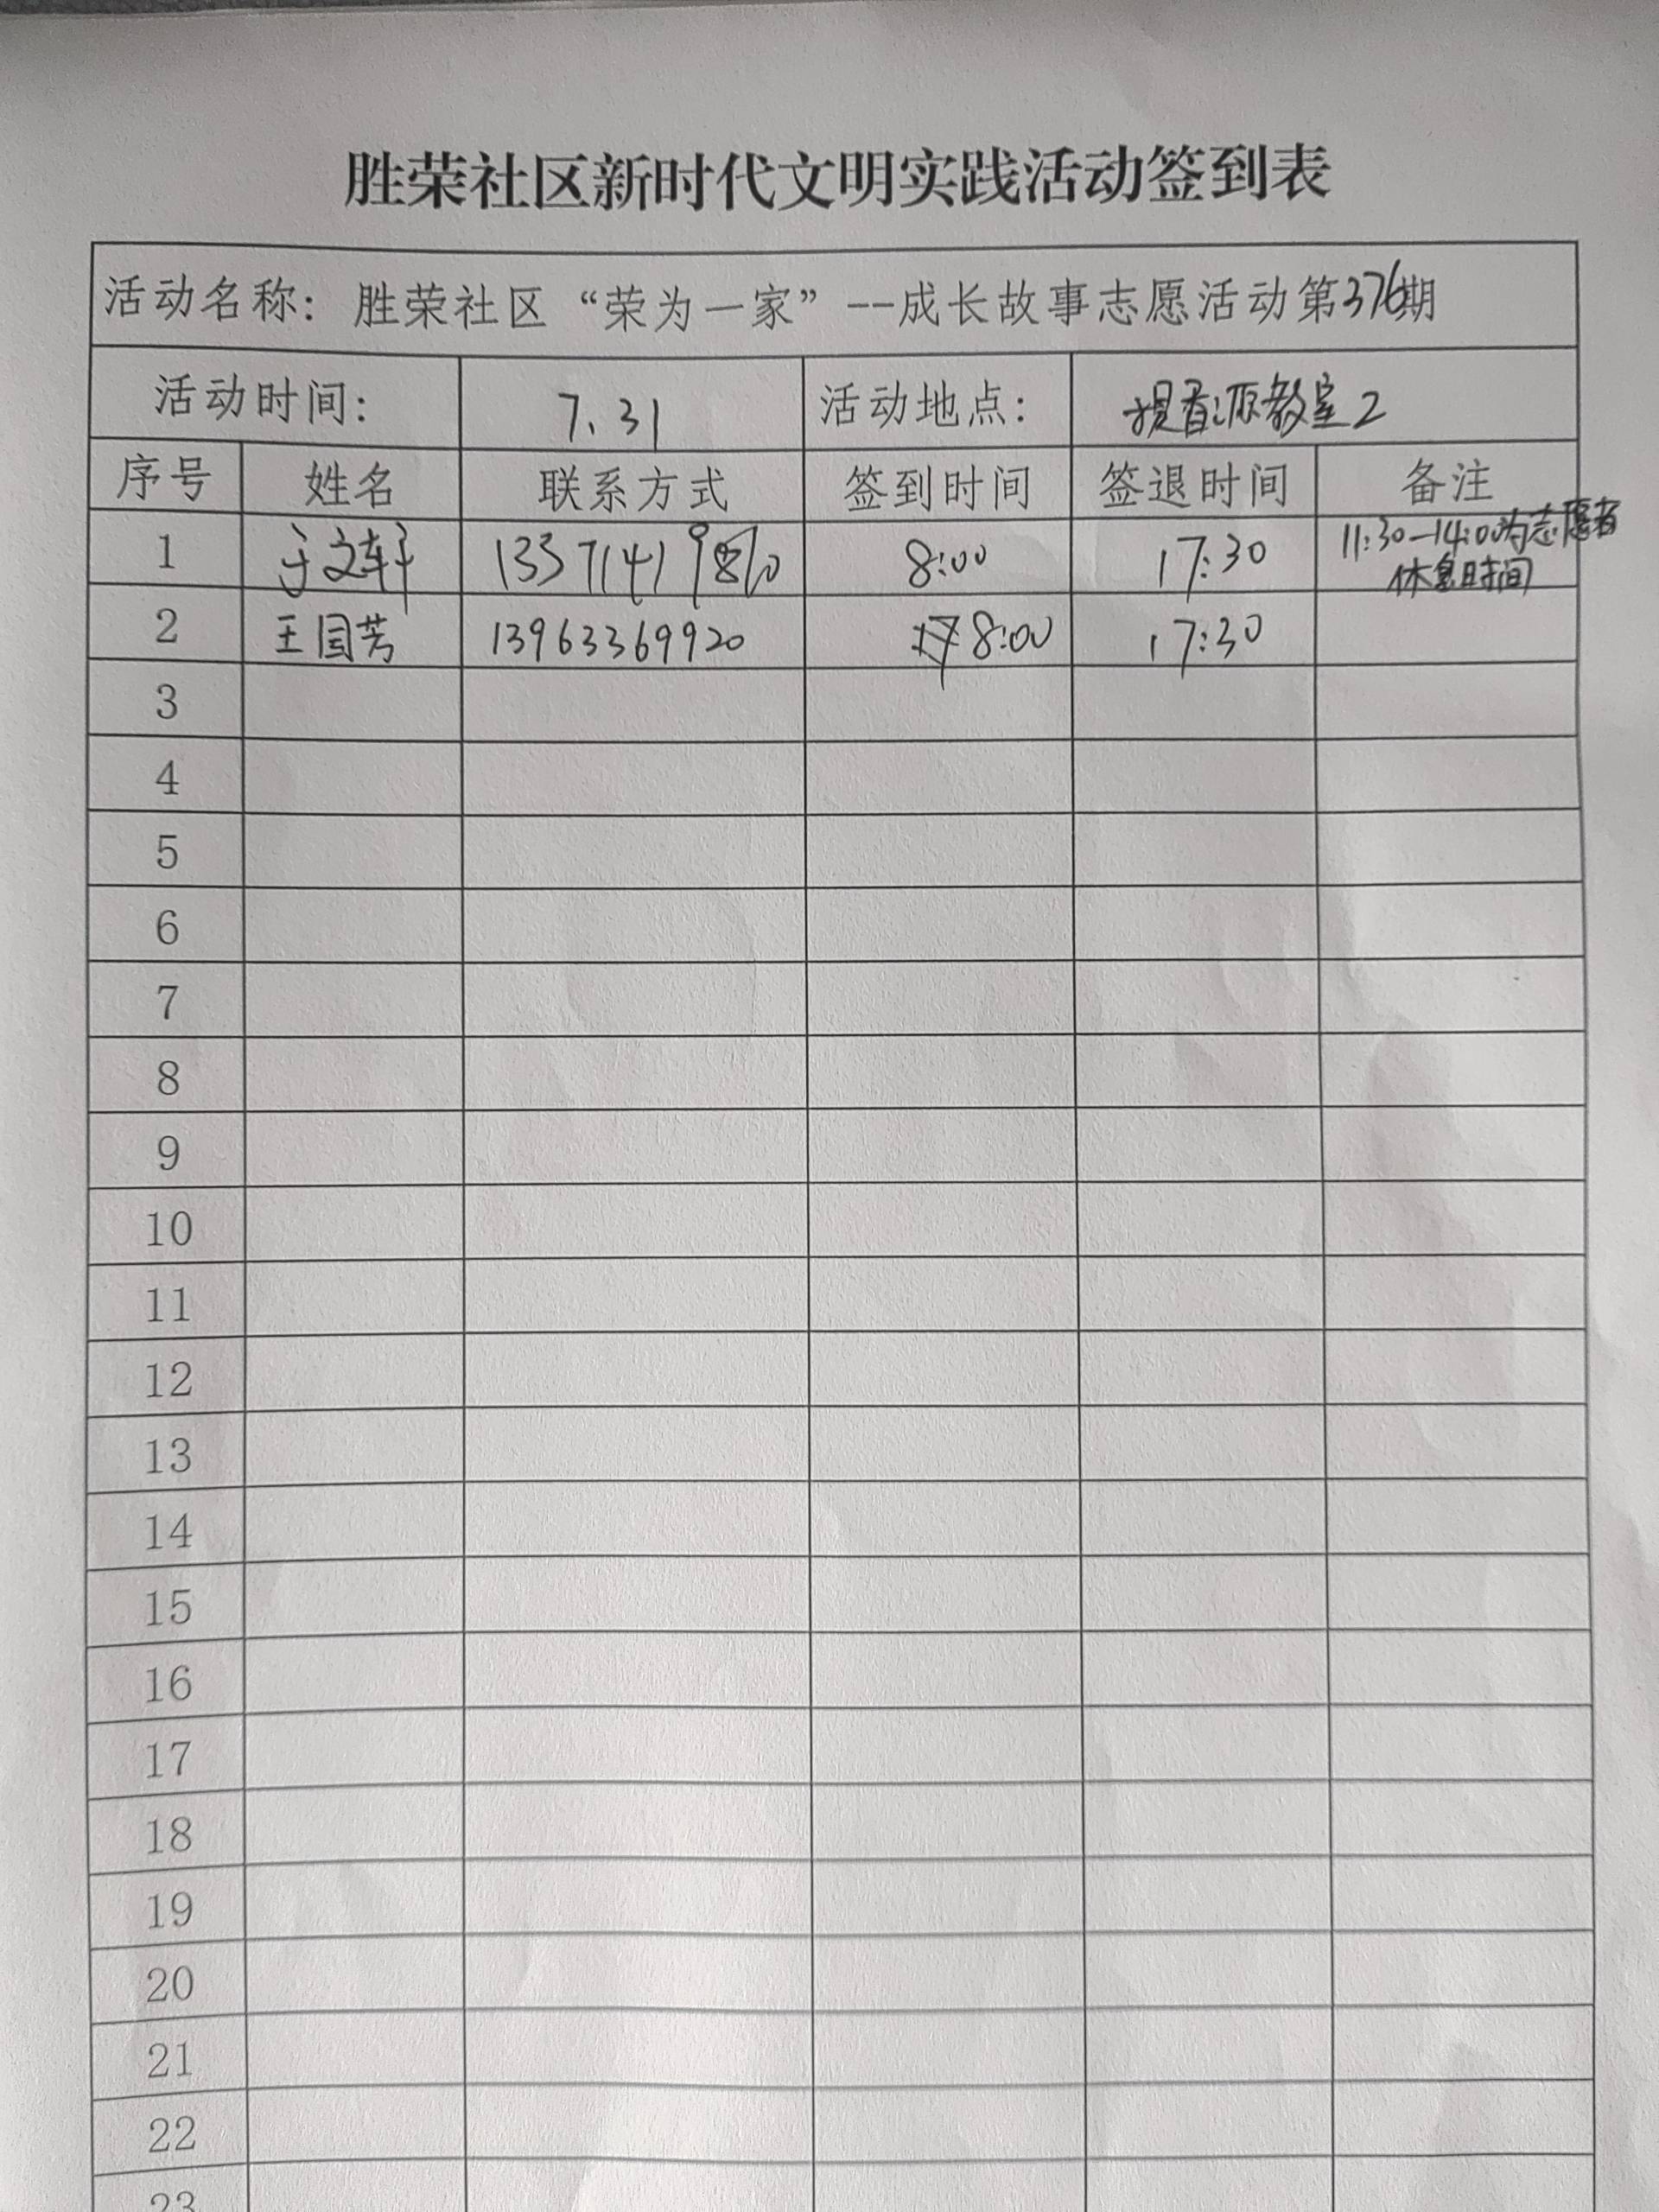 胜荣社区新时代文明实践活动签到表
活动名称：胜荣社区“荣为一家”--成长故事志愿活动第376期
活动时间： 7.31 活动地点： 教室2
序号 姓名 联系方式 签到时间 签退时间 备注
1 于文轩 8:00 17:30 11:30-14:00为志愿者
休息时间
2 王国芳 13963369920 8:00 17:30
3
4
5
6
7
8
9
10
11
12
13
14
15
16
17
18
19
20
21
22
23